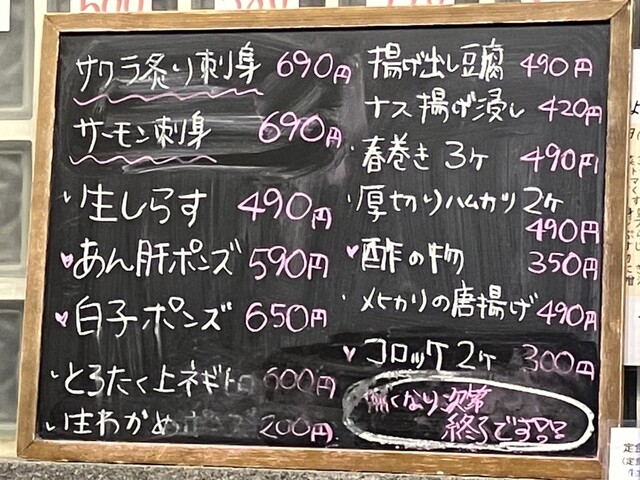 サワラ炙り刺身 690円
サーモン刺身 690円
生しらす 490円
あん肝ポンズ 590円
白子ポンズ 650円
とろたく上ネギトロ 600円
生わかめポンズ 200円
揚げ出し豆腐 490円
ナス揚げ浸し 420円
春巻き 3ヶ 490円
厚切りハムカツ 2ヶ
490円
酢の物 350円
メヒカリの唐揚げ 490円
コロッケ 2ヶ 300円
無くなり次第
終了です!!